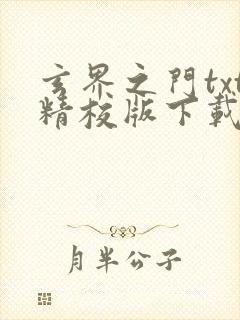 玄界之門txt
精校版下載
月半公子